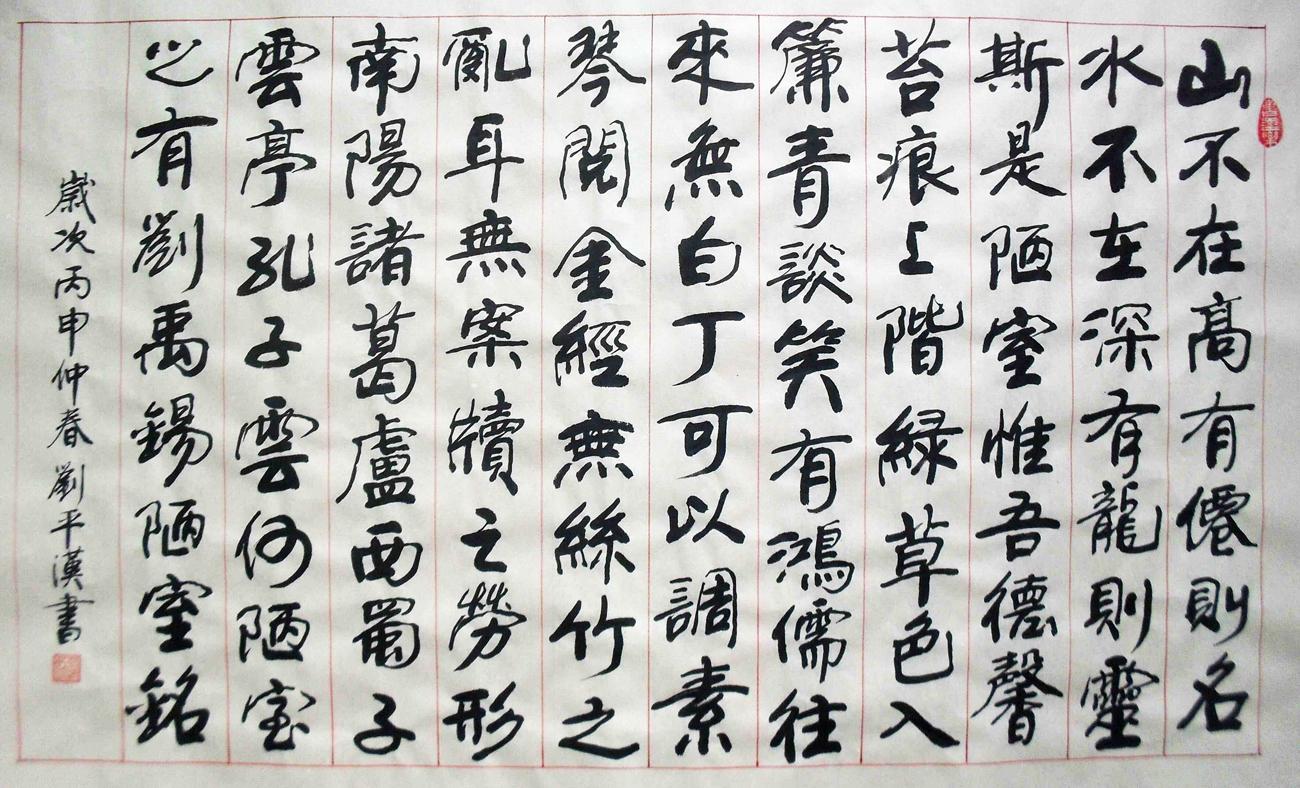 山不在高有僊則名
水不在深有龍則靈
斯是陋室惟吾德馨
苔痕上階緑草色入
簾青談笑有鴻儒往
來無白丁可以調素
琴閲金經無絲竹之
亂耳無案牘之勞形
南陽諸葛盧西蜀子
雲亭孔子雲何陋室
之有劉禹錫陋室銘
歲次丙申仲春劉平漢書